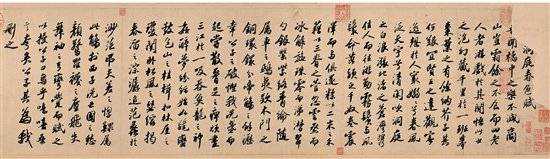 洞庭春色賦
吾聞橘中之樂不減商
山豈霜餘之不食而四老
人者游戲於其間悟此世
之泡幻藏千里於一班舉
棗葉之有餘納芥子其何
艱宜賢王之達觀寄
逸想於人寰嫋嫋兮春風
泛天宇兮清閑吹洞庭
之白浪漲北渚之蒼灣携
佳人而往游勒霧鬢與風
鬟命黃頭之千奴卷震
澤而與俱還糅以二米之禾
藉以三脊之菅忽雲烝而
冰解旋珠零而涕潸翠
勺銀罌紫絡青綸隨
屬車之鴟夷款木門之
銅鐶分帝觴之餘瀝
幸公子之破慳我洗盞而
起嘗散腰足之痹頑盡
三江於一吸吞魚龍之神
姦醉夢紛紜始如髦蠻
鼓包山之桂楫扣林屋之
瓊關臥松風之瑟縮揭
春溜之淙潺追范蠡於
渺茫吊夫差之惸鰥屬
此觴於西子洗亡國之愁
顏驚羅襪之塵飛失
舞袖之弓彎覺而賦之
以授公子曰烏乎噫嘻吾
言夸矣公子其為我
刪之